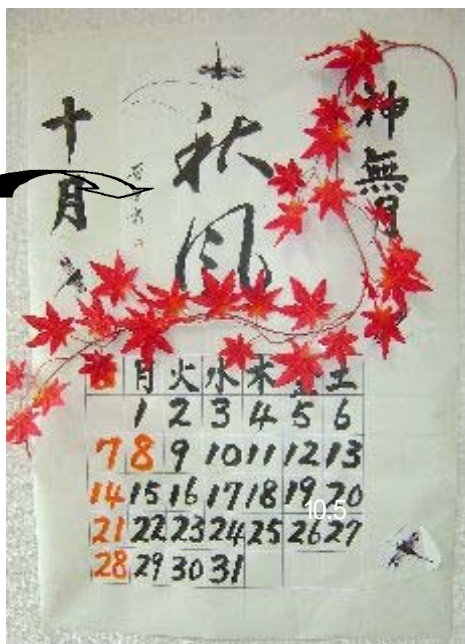 神無月
秋風
十月
日 月 火 水 木 金 土
1 2 3 4 5 6
7 8 9 10 11 12 13
14 15 16 17 18 19 20
21 22 23 24 25 26 27
28 29 30 31
10.5